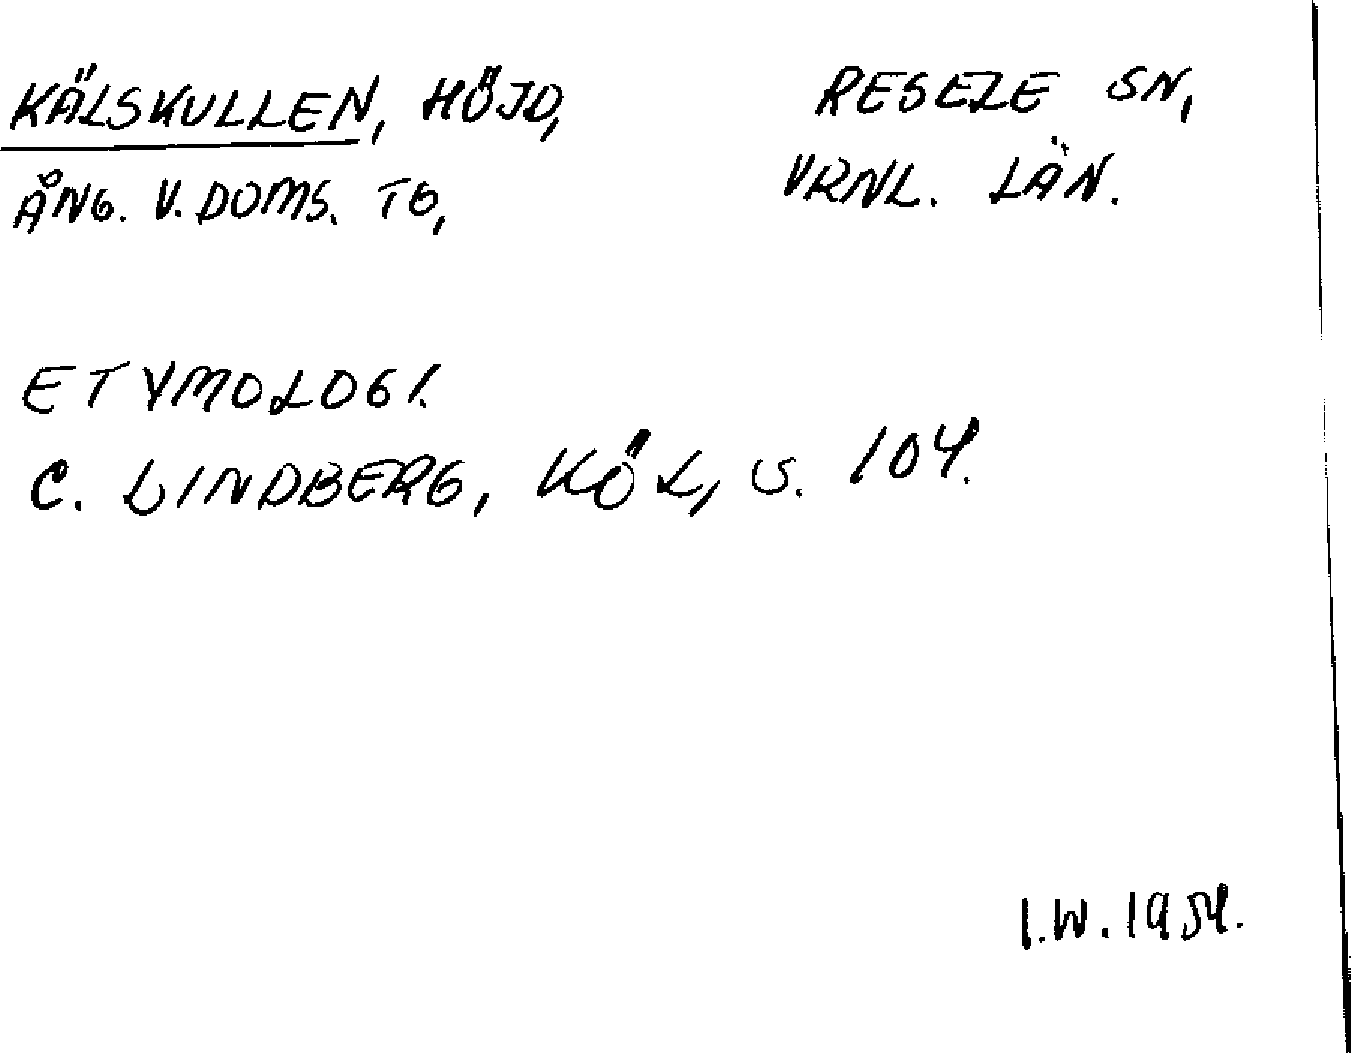 KÄLSKULLEN, HÖJD, RESELE SN,
ÅNG. V. DOMS. TG, VRNL. LÄN.
ETYMOLOGI.
C. LINDBERG, KÖL, S. 104.
I.W. 1954.